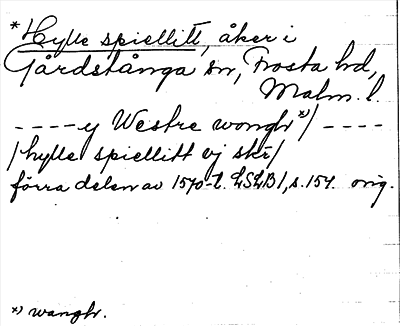 *Hylle spiellitt, åker i
Gårdstånga sn, Frosta hd,
Malm. l.
----y Westre wongh*)/----
/hylle spiellitt ej skr/
förra delen av 1570-t. LSLB1, s.154. orig.
*) wangh.